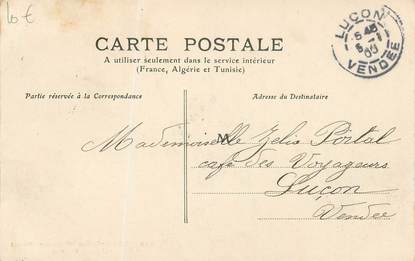 10 €
LUÇON
VENDÉE
CARTE POSTALE
A utiliser seulement dans le service intérieur
(France, Algérie et Tunisie)
Partie réservée à la Correspondance
Adresse du Destinataire
Mademoiselle Zelia Portal
café des Voyageurs
Luçon
Vendée